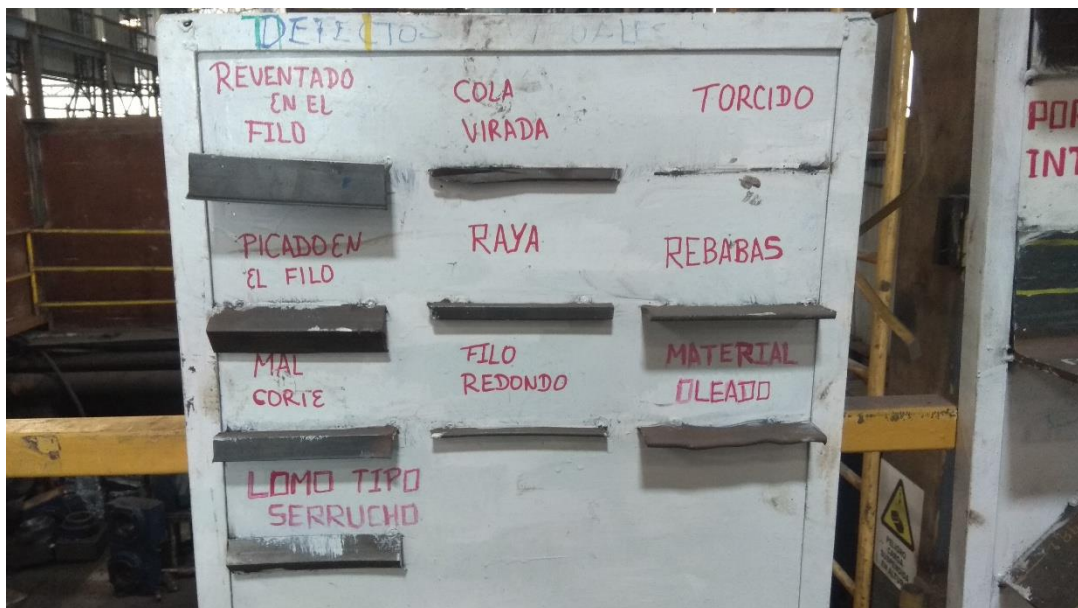 DEFECTOS
REVENTADO
EN EL
FILO
COLA
VIRADA
TORCIDO
PICADO EN
EL FILO
RAYA
REBABAS
MAL
CORTE
FILO
REDONDO
MATERIAL
OLEADO
LOMO TIPO
SERRUCHO
PELIGRO
CARGA
SUSPENDIDA